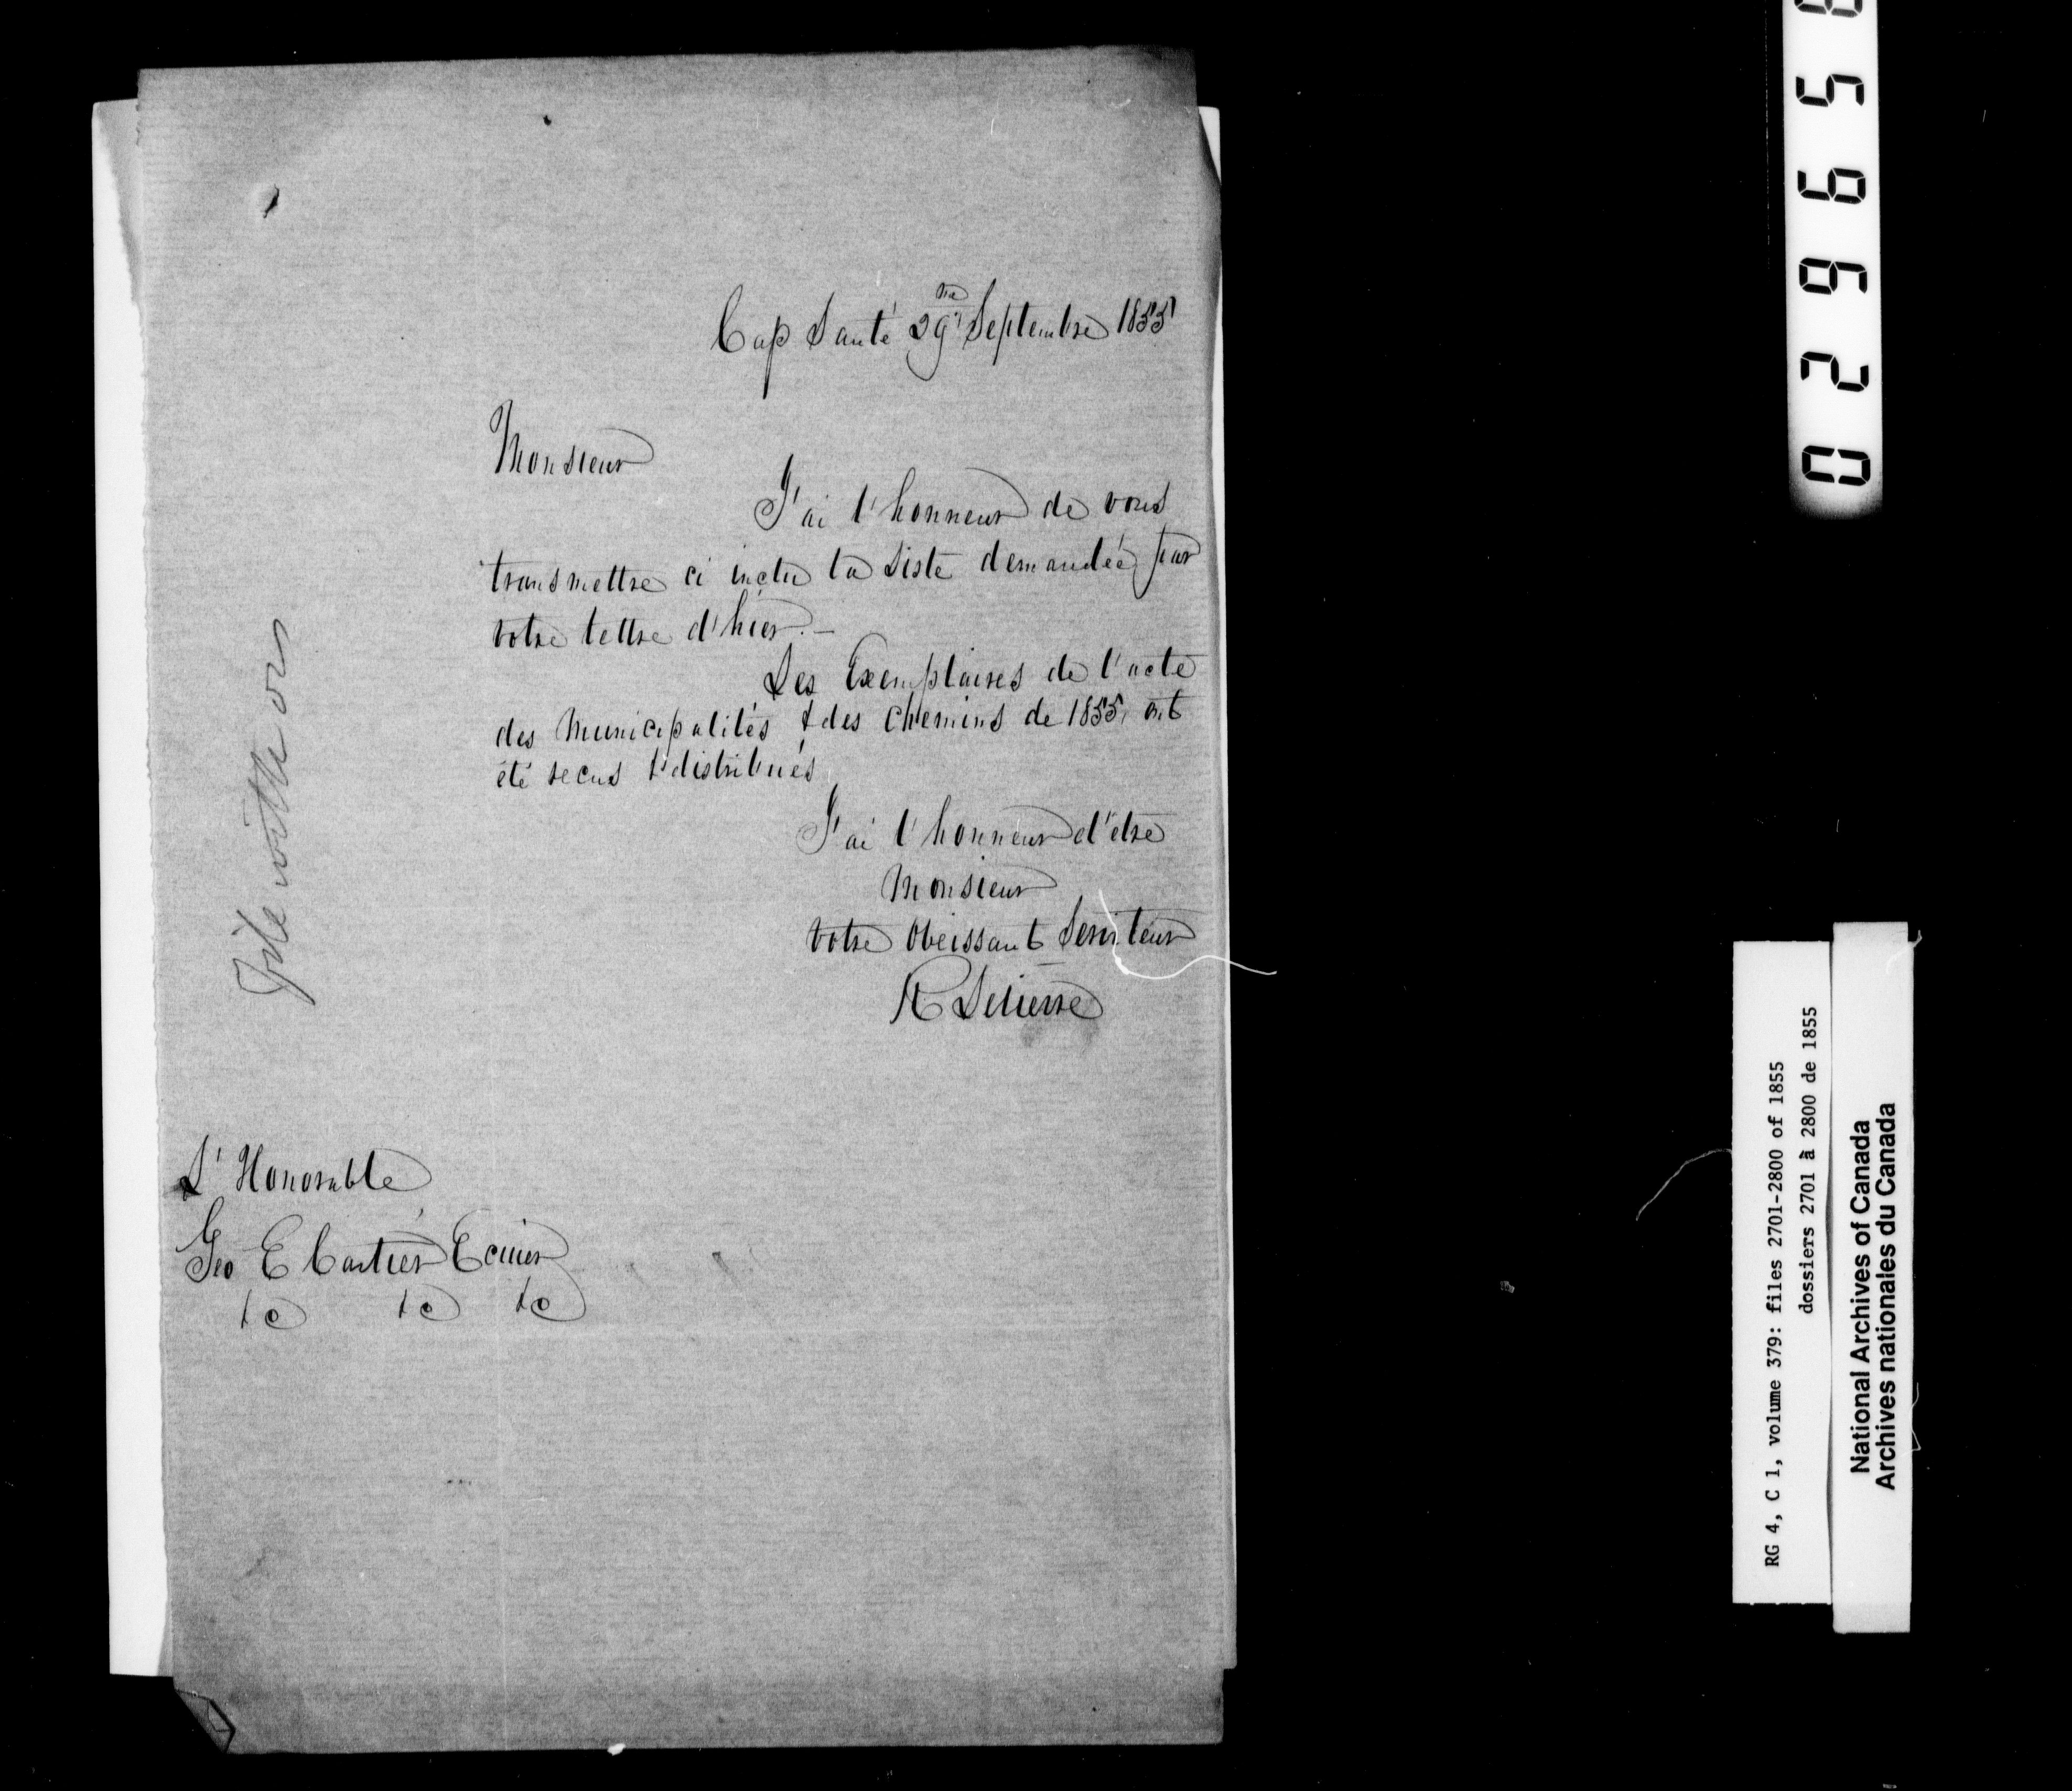 Cap Santé 29me Septembre 1855
Monsieur
J'ai l'honneur de vous
transmettre ci inclu la Liste demandée par
votre lettre d'hier. —
Les Exemplaires de l'acte
des Municipalités & des Chemins de 1855, ont
été recus & distribués
J'ai l'honneur d'être
Monsieur
Votre Obeissant Serviteur
L'Honorable
Geo E Cartier Ecuier
&c &c &c
File with ors
02965
RG 4, C 1, volume 379: files 2701-2800 of 1855
dossiers 2701 à 2800 de 1855
National Archives of Canada
Archives nationales du Canada